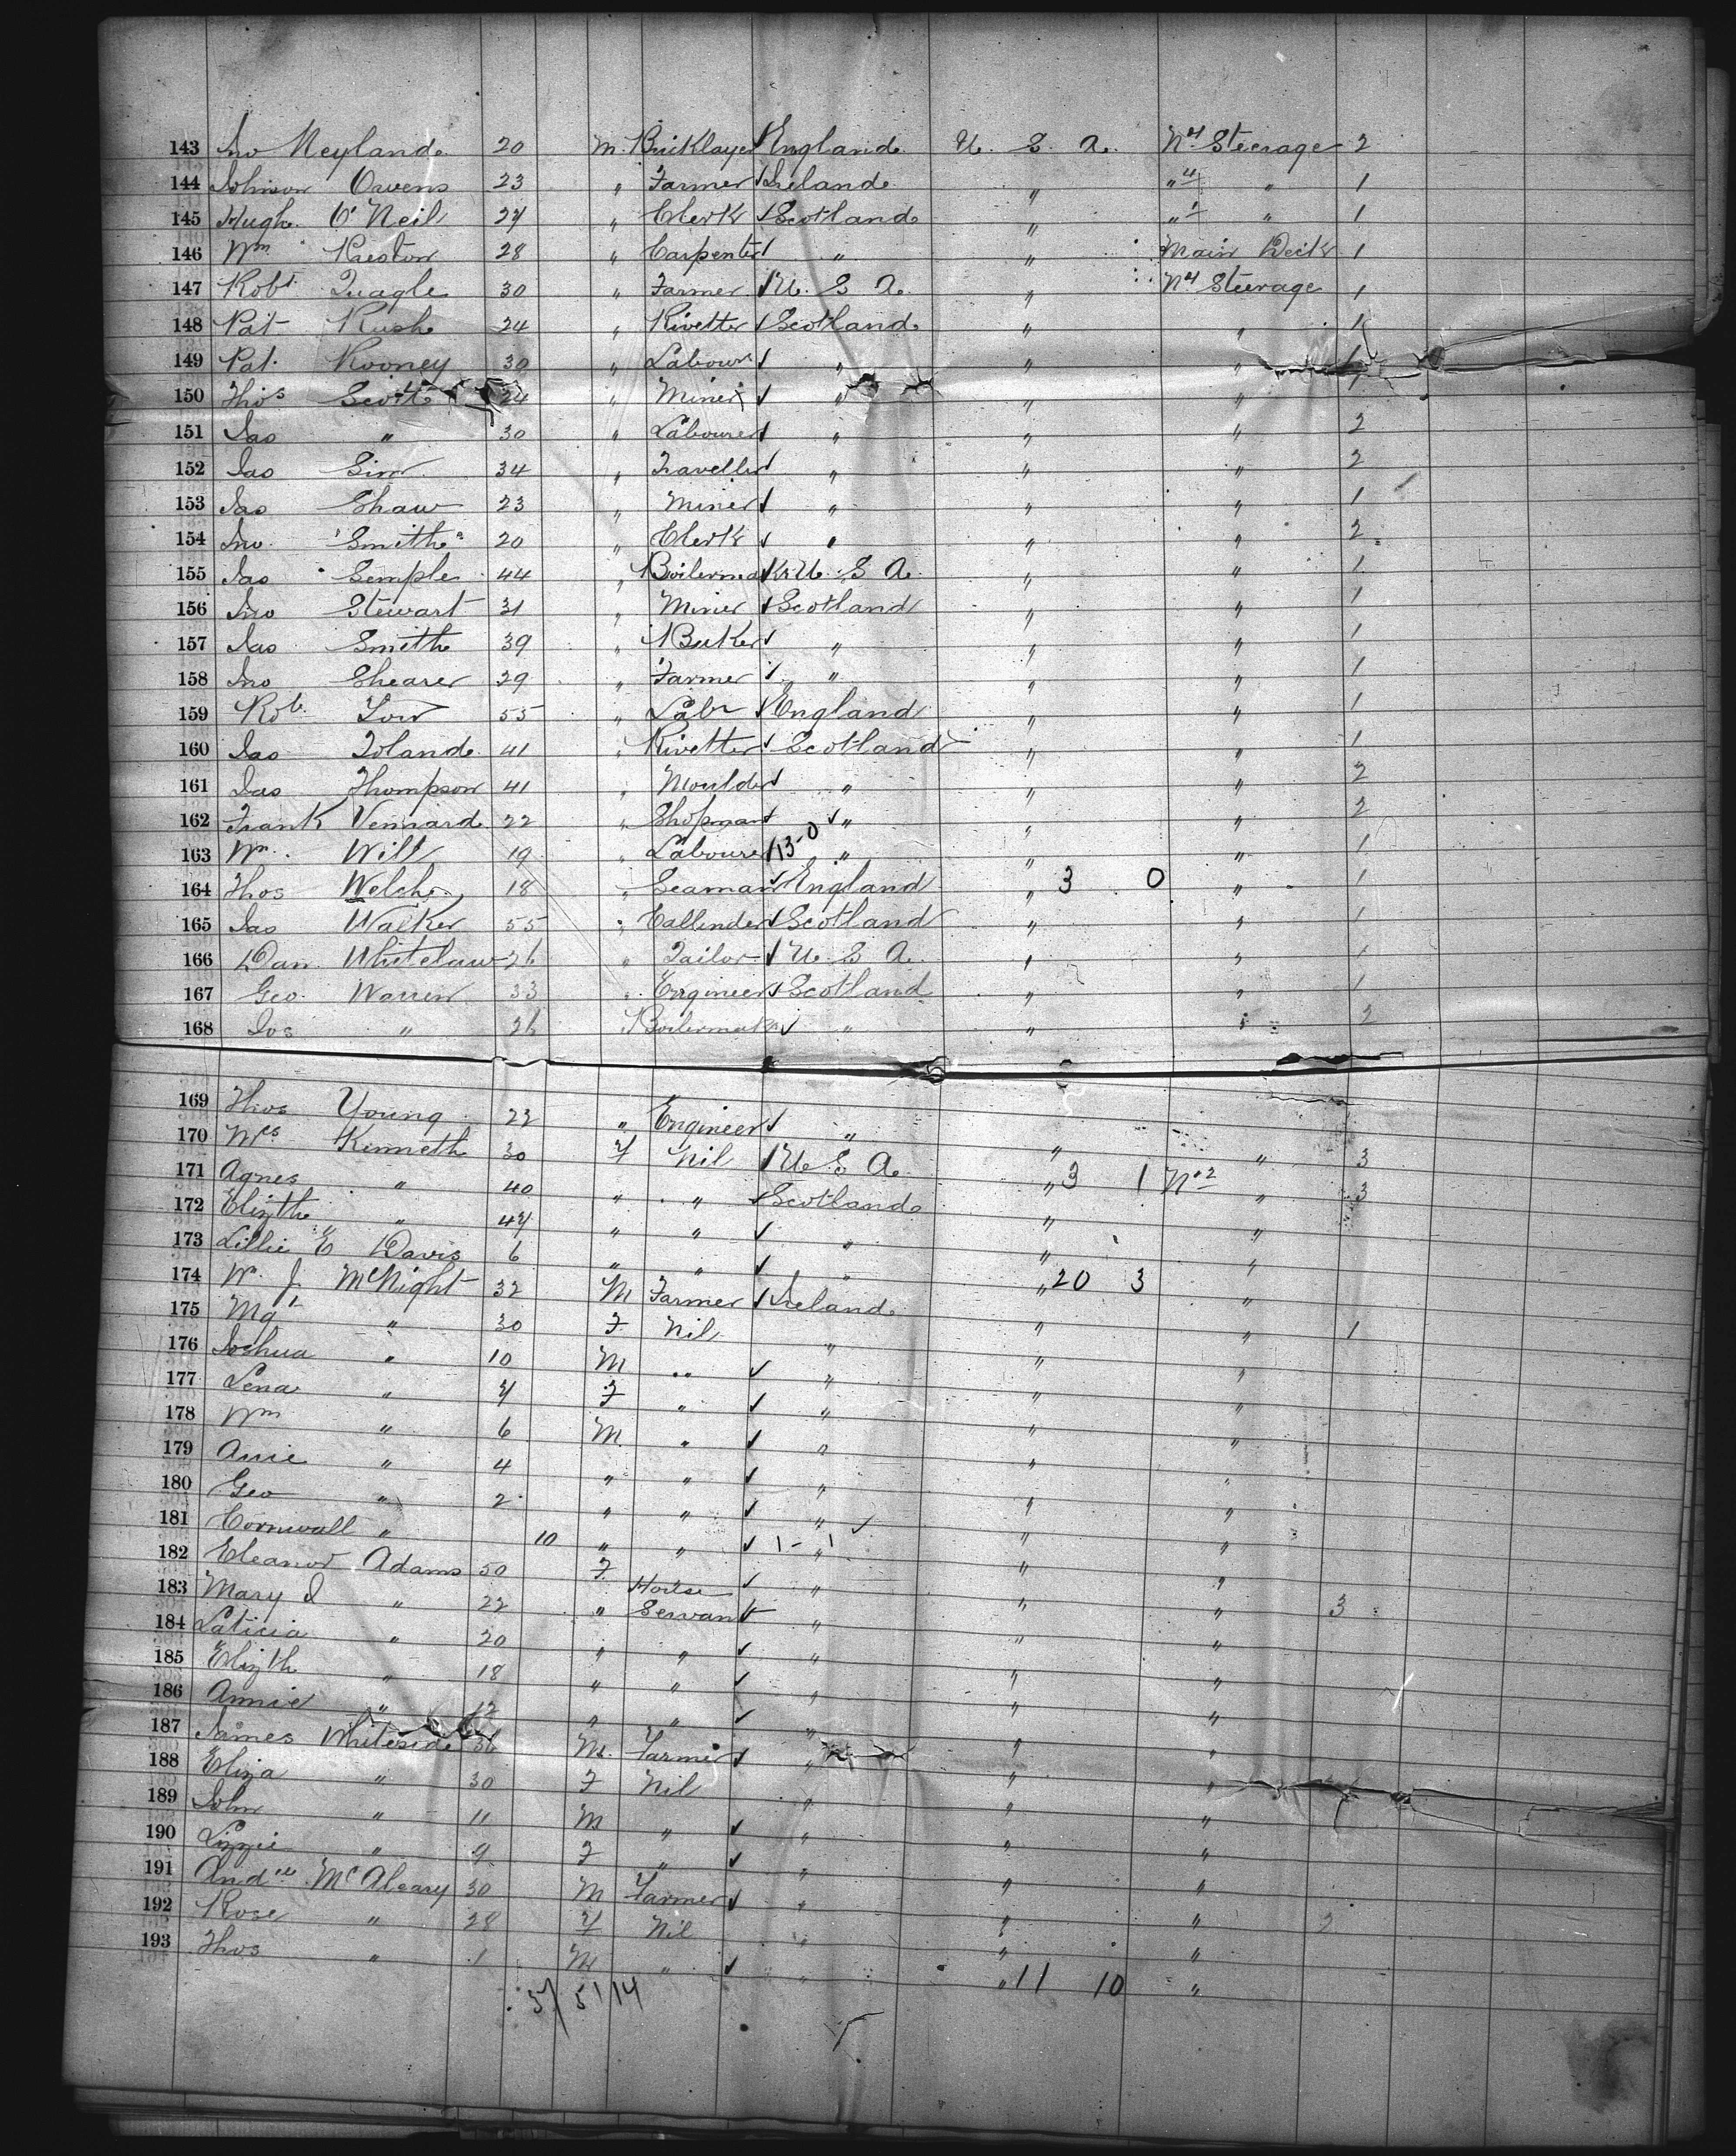 143 Jno Neyland 20 M. Bricklayer England U. S. A. No 4 Steerage 2
144 Johnson Owens 23 " Farmer Ireland " " 4 " 1
145 Hugh O'Neil 27 " Clerk Scotland " " 1 " 1
146 Wm Preston 28 " Carpenter " " Main Deck 1
147 Robt Quagle 30 " Farmer U. S. A. " No 4 Steerage 1
148 Pat Rush 24 " Rivetter Scotland " " 1
149 Pat. Rooney 30 " Labourer " " " 1
150 Thos Scott 24 " Miner " " " 1
151 Jas " 30 " Labourer " " " 2
152 Jas Sim 34 " Traveller " " " 2
153 Jas Shaw 23 " Miner " " " 1
154 Jno Smith 20 " Clerk " " " 2
155 Jas Semple 44 " Boilermaker U. S. A. " " 1
156 Jno Stewart 31 " Miner Scotland " " 1
157 Jas Smith 39 " Baker " " " 1
158 Jno Shearer 29 " Farmer " " " 1
159 Robt 55 " Labr England " " 1
160 Jas Toland 41 " Rivetter Scotland " " 1
161 Jas Thompson 41 " Moulder " " " 2
162 Frank Vennard 22 " Shopman " " " 2
163 Wm. Will 19 " Labourer 13-0 " " " 1
164 Thos Welch 18 " Seaman England " 3 0 " 1
165 Jas Walker 55 " Callender Scotland " " 1
166 Dan Whitelaw 26 " Tailor U. S. A. " " 1
167 Geo. Warren 33 " Engineer Scotland " " 1
168 Jos " 26 Boilermaker " " " 2
169 Thos Young 22 " Engineer " " "
170 Mrs Kenneth 30 F Nil U. S. A. " 3 1 No 2 " 3
171 Agnes " 40 " " Scotland " " 3
172 Elizth " 47 " " " " "
173 Lillie E Davis 6 " " " " "
174 W. J. McNight 32 M Farmer Ireland " 20 3 "
175 Mgt " 30 F Nil " " " 1
176 Joshua " 10 M " " " "
177 Lena " 7 F " " " "
178 Wm " 6 M " " " "
179 Annie " 4 " " " " "
180 Geo " 2 " " " " "
181 Cornwall " 10 " " 1-1 " " "
182 Eleanor Adams 50 F " " "
183 Mary J " 22 " House Servant " " " 3
184 Laticia " 20 " " " " "
185 Elizth " 18 " " " " "
186 Annie " 12 " " " " "
187 James Whiteside 36 M. Farmer " " "
188 Eliza " 30 F Nil " " "
189 John " 11 M " " " "
190 Lizzie " 9 F " " " "
191 Andw McAleary 30 M Farmer " " "
192 Rose " 28 F Nil " " " 2
193 Thos " 1 M " " " 11 10 "